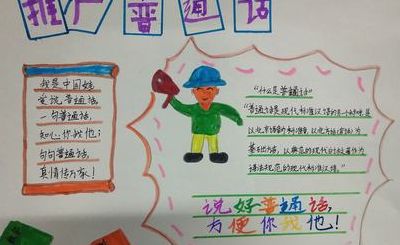 推广普通话
我是中国娃
爱说普通话,
一句普通话,
知心你我他;
句句普通话,
真情传万家!
“什么是普通话”
“普通话是现代标准汉语的另一个称呼是
以北京语音为标准音,以北方话为
基础,以典范的现代作为
语法规范的现代标准汉语."
说好普通话,
方便你我他!